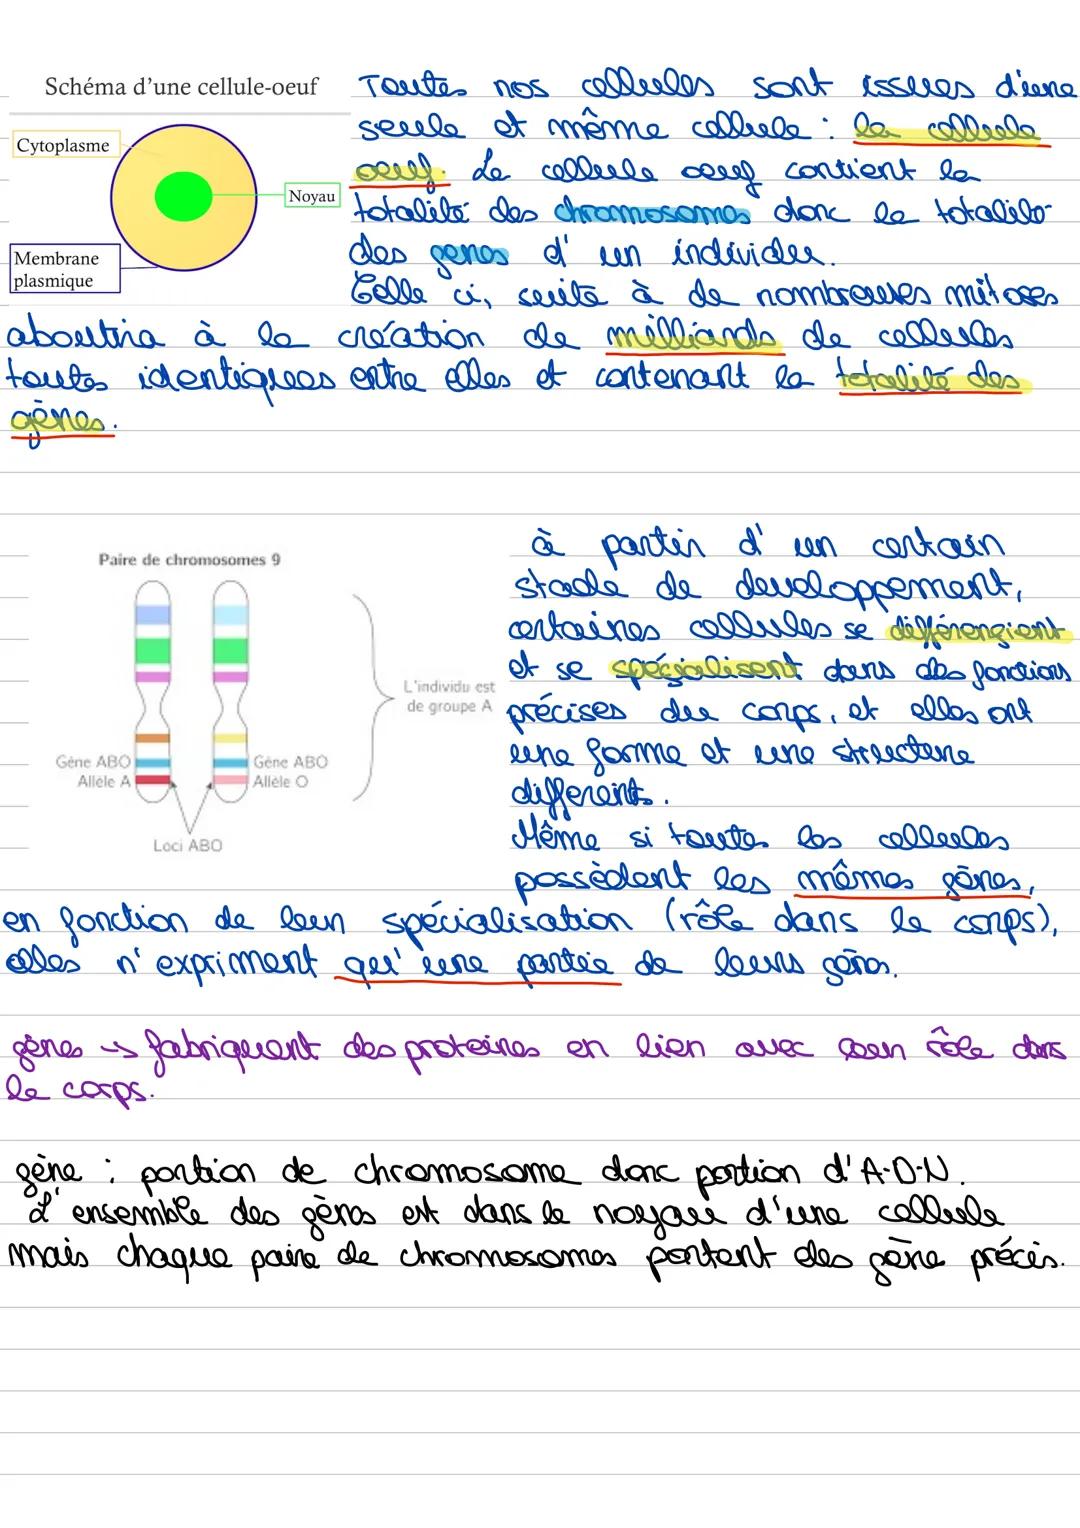 Schéma d'une cellule-oeuf
Cytoplasme
Noyau
Membrane
plasmique
Toutes nos cellules sont issues d'une
seule et même cellule : la cellule
oeuf. La cellule oeuf contient la
totalité des chromosomes donc la totalité
des genes d'un individu.
Celle ci, suite à de nombreuses mitoses
aboutira à la création de milliards de cellules
toutes identiques entre elles et contenant la totalité des
gènes.
Paire de chromosomes 9
Gène ABO
Allèle A
Gène ABO
Allèle O
Loci ABO
L'individu est
de groupe A
à partir d'un certain
stade de developpement,
certaines cellules se différencient
et se spécialisent dans des fonctions
précises du corps, et elles ont
une forme et une structure
differents.
Même si toutes les cellules
possèdent les mêmes gènes,
en fonction de leur spécialisation (rôle dans le corps),
elles n'expriment qu'une partie de leurs gènes.
gènes → fabriquent des proteines en lien avec rôle dans
le corps.
gène : portion de chromosome donc portion d'A.D.N.
L'ensemble des gènes est dans le noyau d'une cellule
mais chaque paire de chromosomes portent des gène précis.